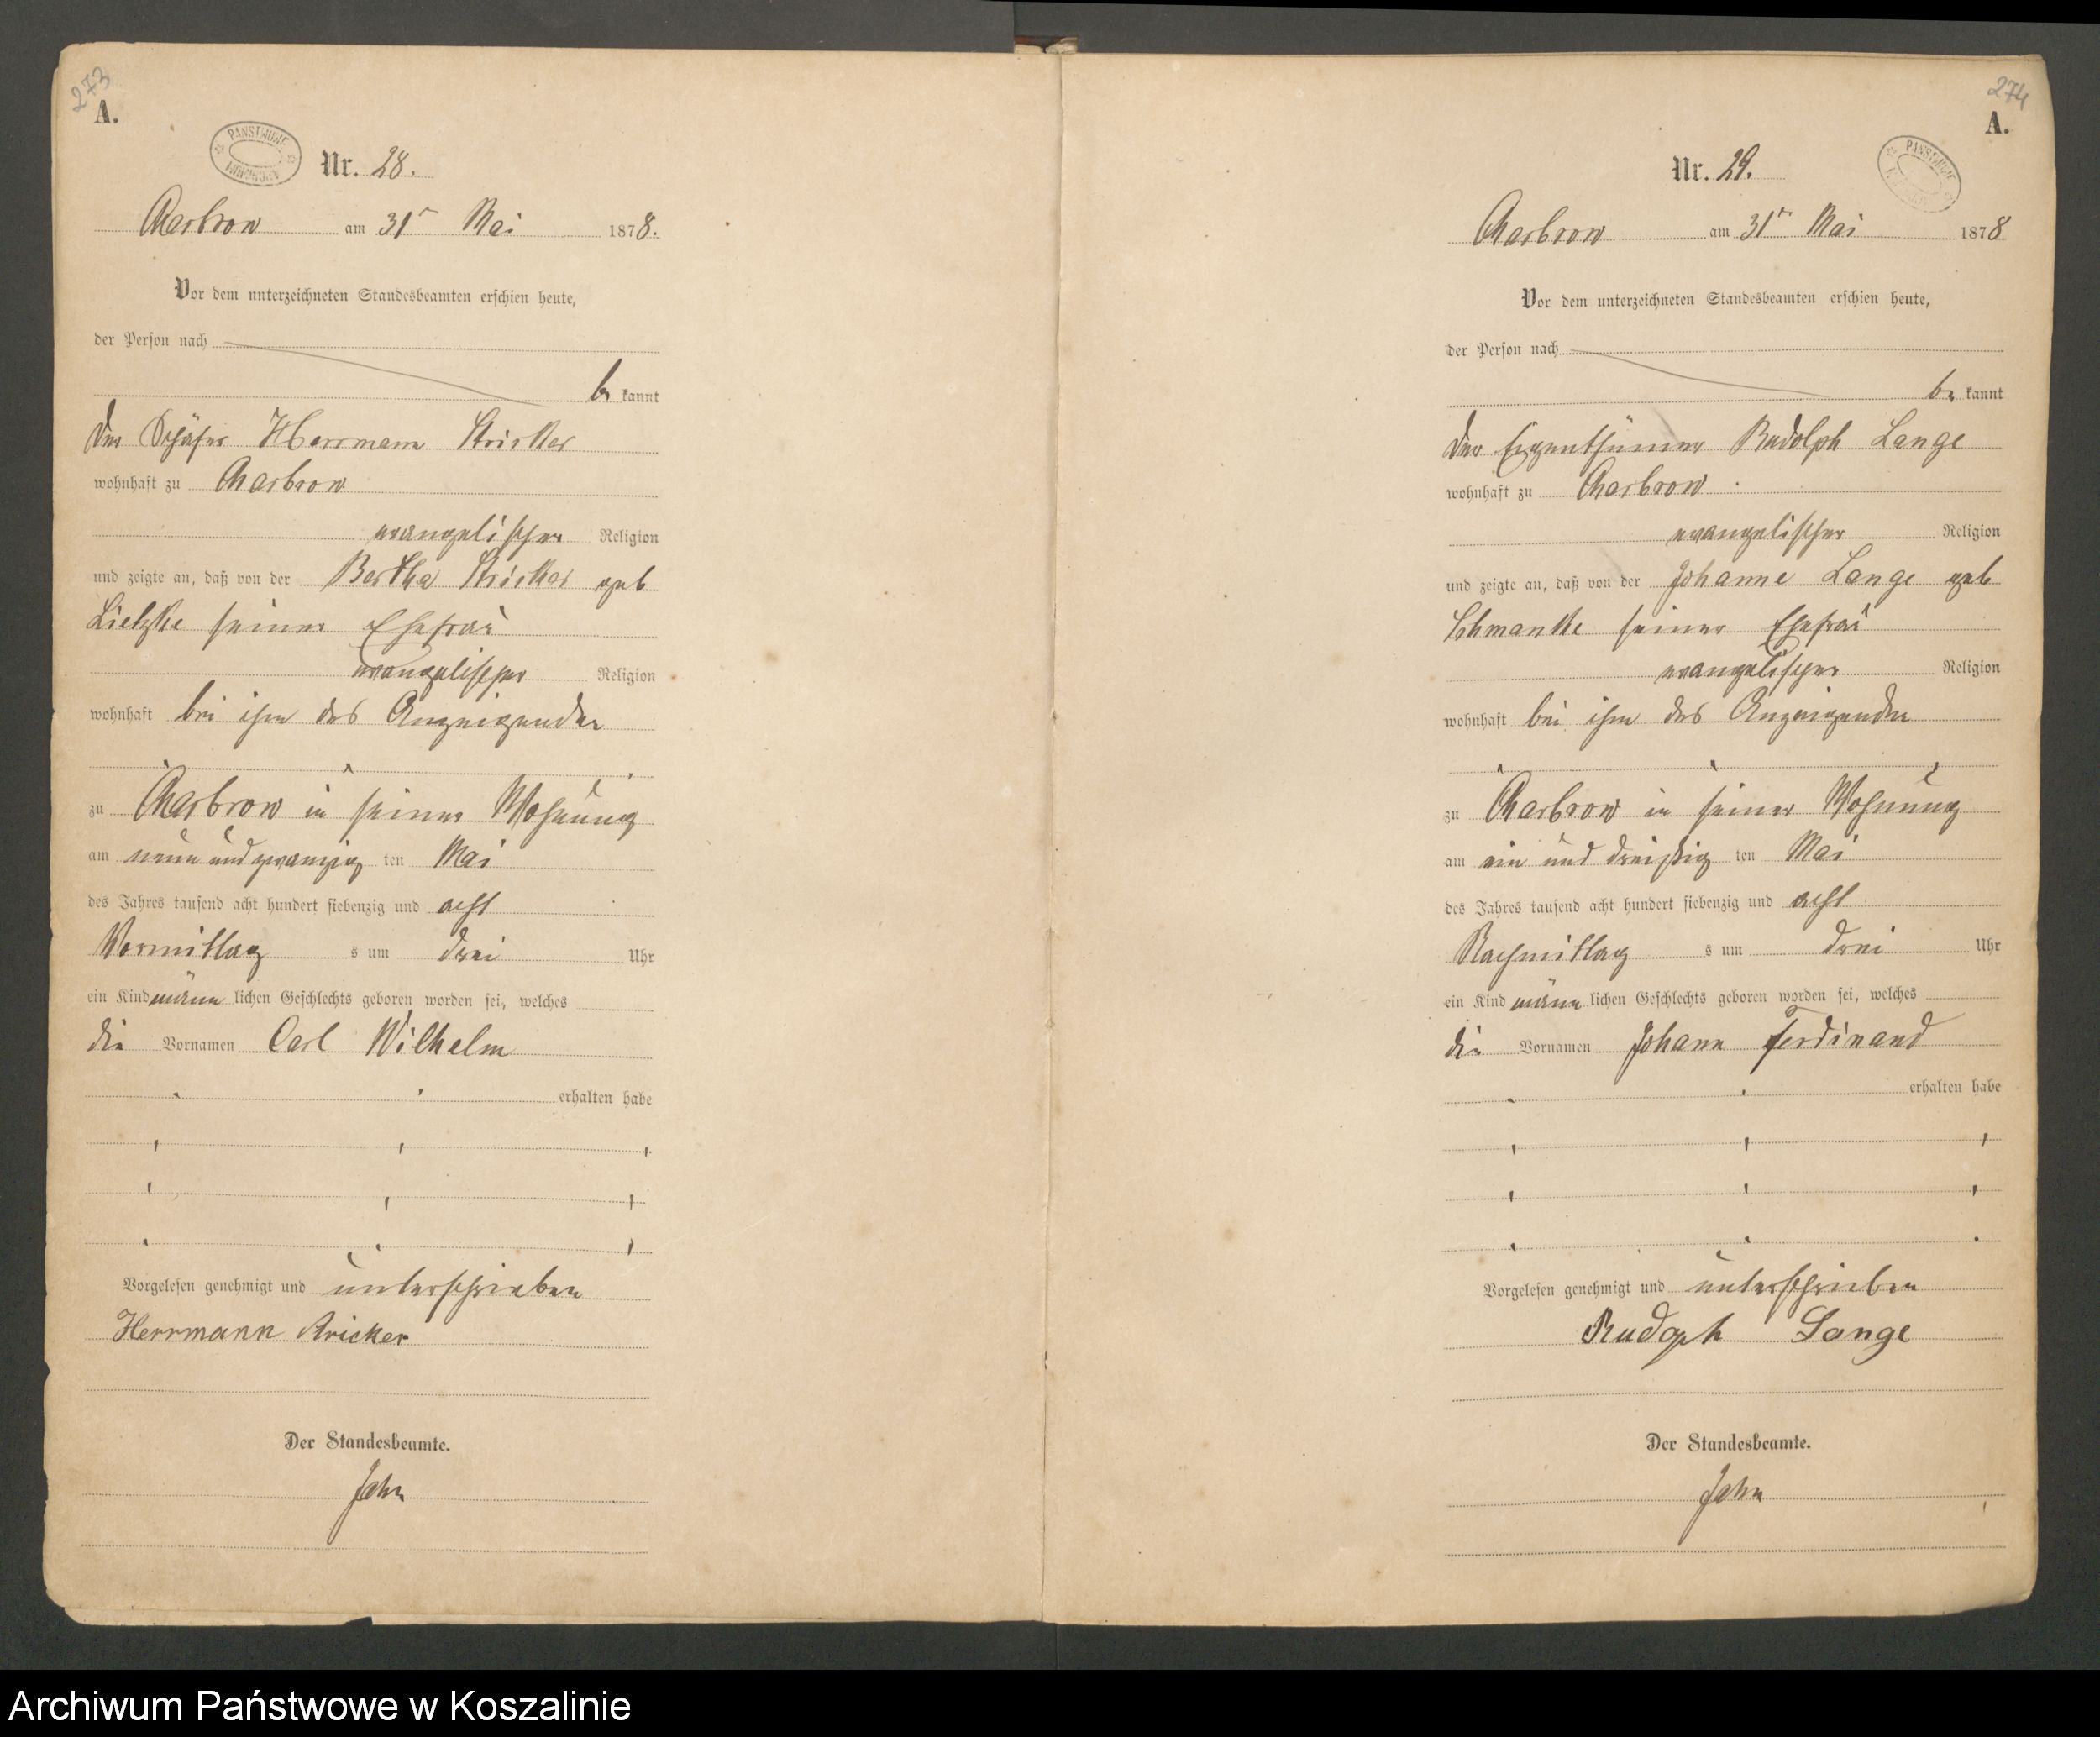 273
A.
PAŃSTWOWE
ARCHIWUM
Nr. 28.
Charbrow am 31ᵗ Mai 1878.
Vor dem unterzeichneten Standesbeamten erschien heute,
der Person nach
be kannt
der Schäfer Herrmann Stricker
wohnhaft zu Charbrow
evangelischer Religion
und zeigte an, daß von der Bertha Stricker geb
Lietzke seiner Ehefrau
evangelischer Religion
wohnhaft bei ihm des Anzeigenden
zu Charbrow in seiner Wohnung
am neun und zwanzig ten Mai
des Jahres tausend acht hundert siebenzig und acht
Vormittag s um drei Uhr
ein Kind männ lichen Geschlechts geboren worden sei, welches
die Vornamen Carl Wilhelm
erhalten habe
Vorgelesen genehmigt und unterschrieben
Herrmann Stricker
Der Standesbeamte.
Jahn
274
A.
PAŃSTWOWE
Nr. 29.
Charbrow am 31ᵗ Mai 1878
Vor dem unterzeichneten Standesbeamten erschien heute,
der Person nach
be kannt
der Eigenthümer Rudolph Lange
wohnhaft zu Charbrow
evangelischer Religion
und zeigte an, daß von der Johanne Lange geb
Schmanke seiner Ehefrau
evangelischer Religion
wohnhaft bei ihm des Anzeigenden
zu Charbrow in seiner Wohnung
am ein und dreißig ten Mai
des Jahres tausend acht hundert siebenzig und acht
Nachmittag s um drei Uhr
ein Kind männ lichen Geschlechts geboren worden sei, welches
die Vornamen Johann Ferdinand
erhalten habe
Vorgelesen genehmigt und unterschrieben
Rudoph Lange
Der Standesbeamte.
Jahn
Archiwum Państwowe w Koszalinie